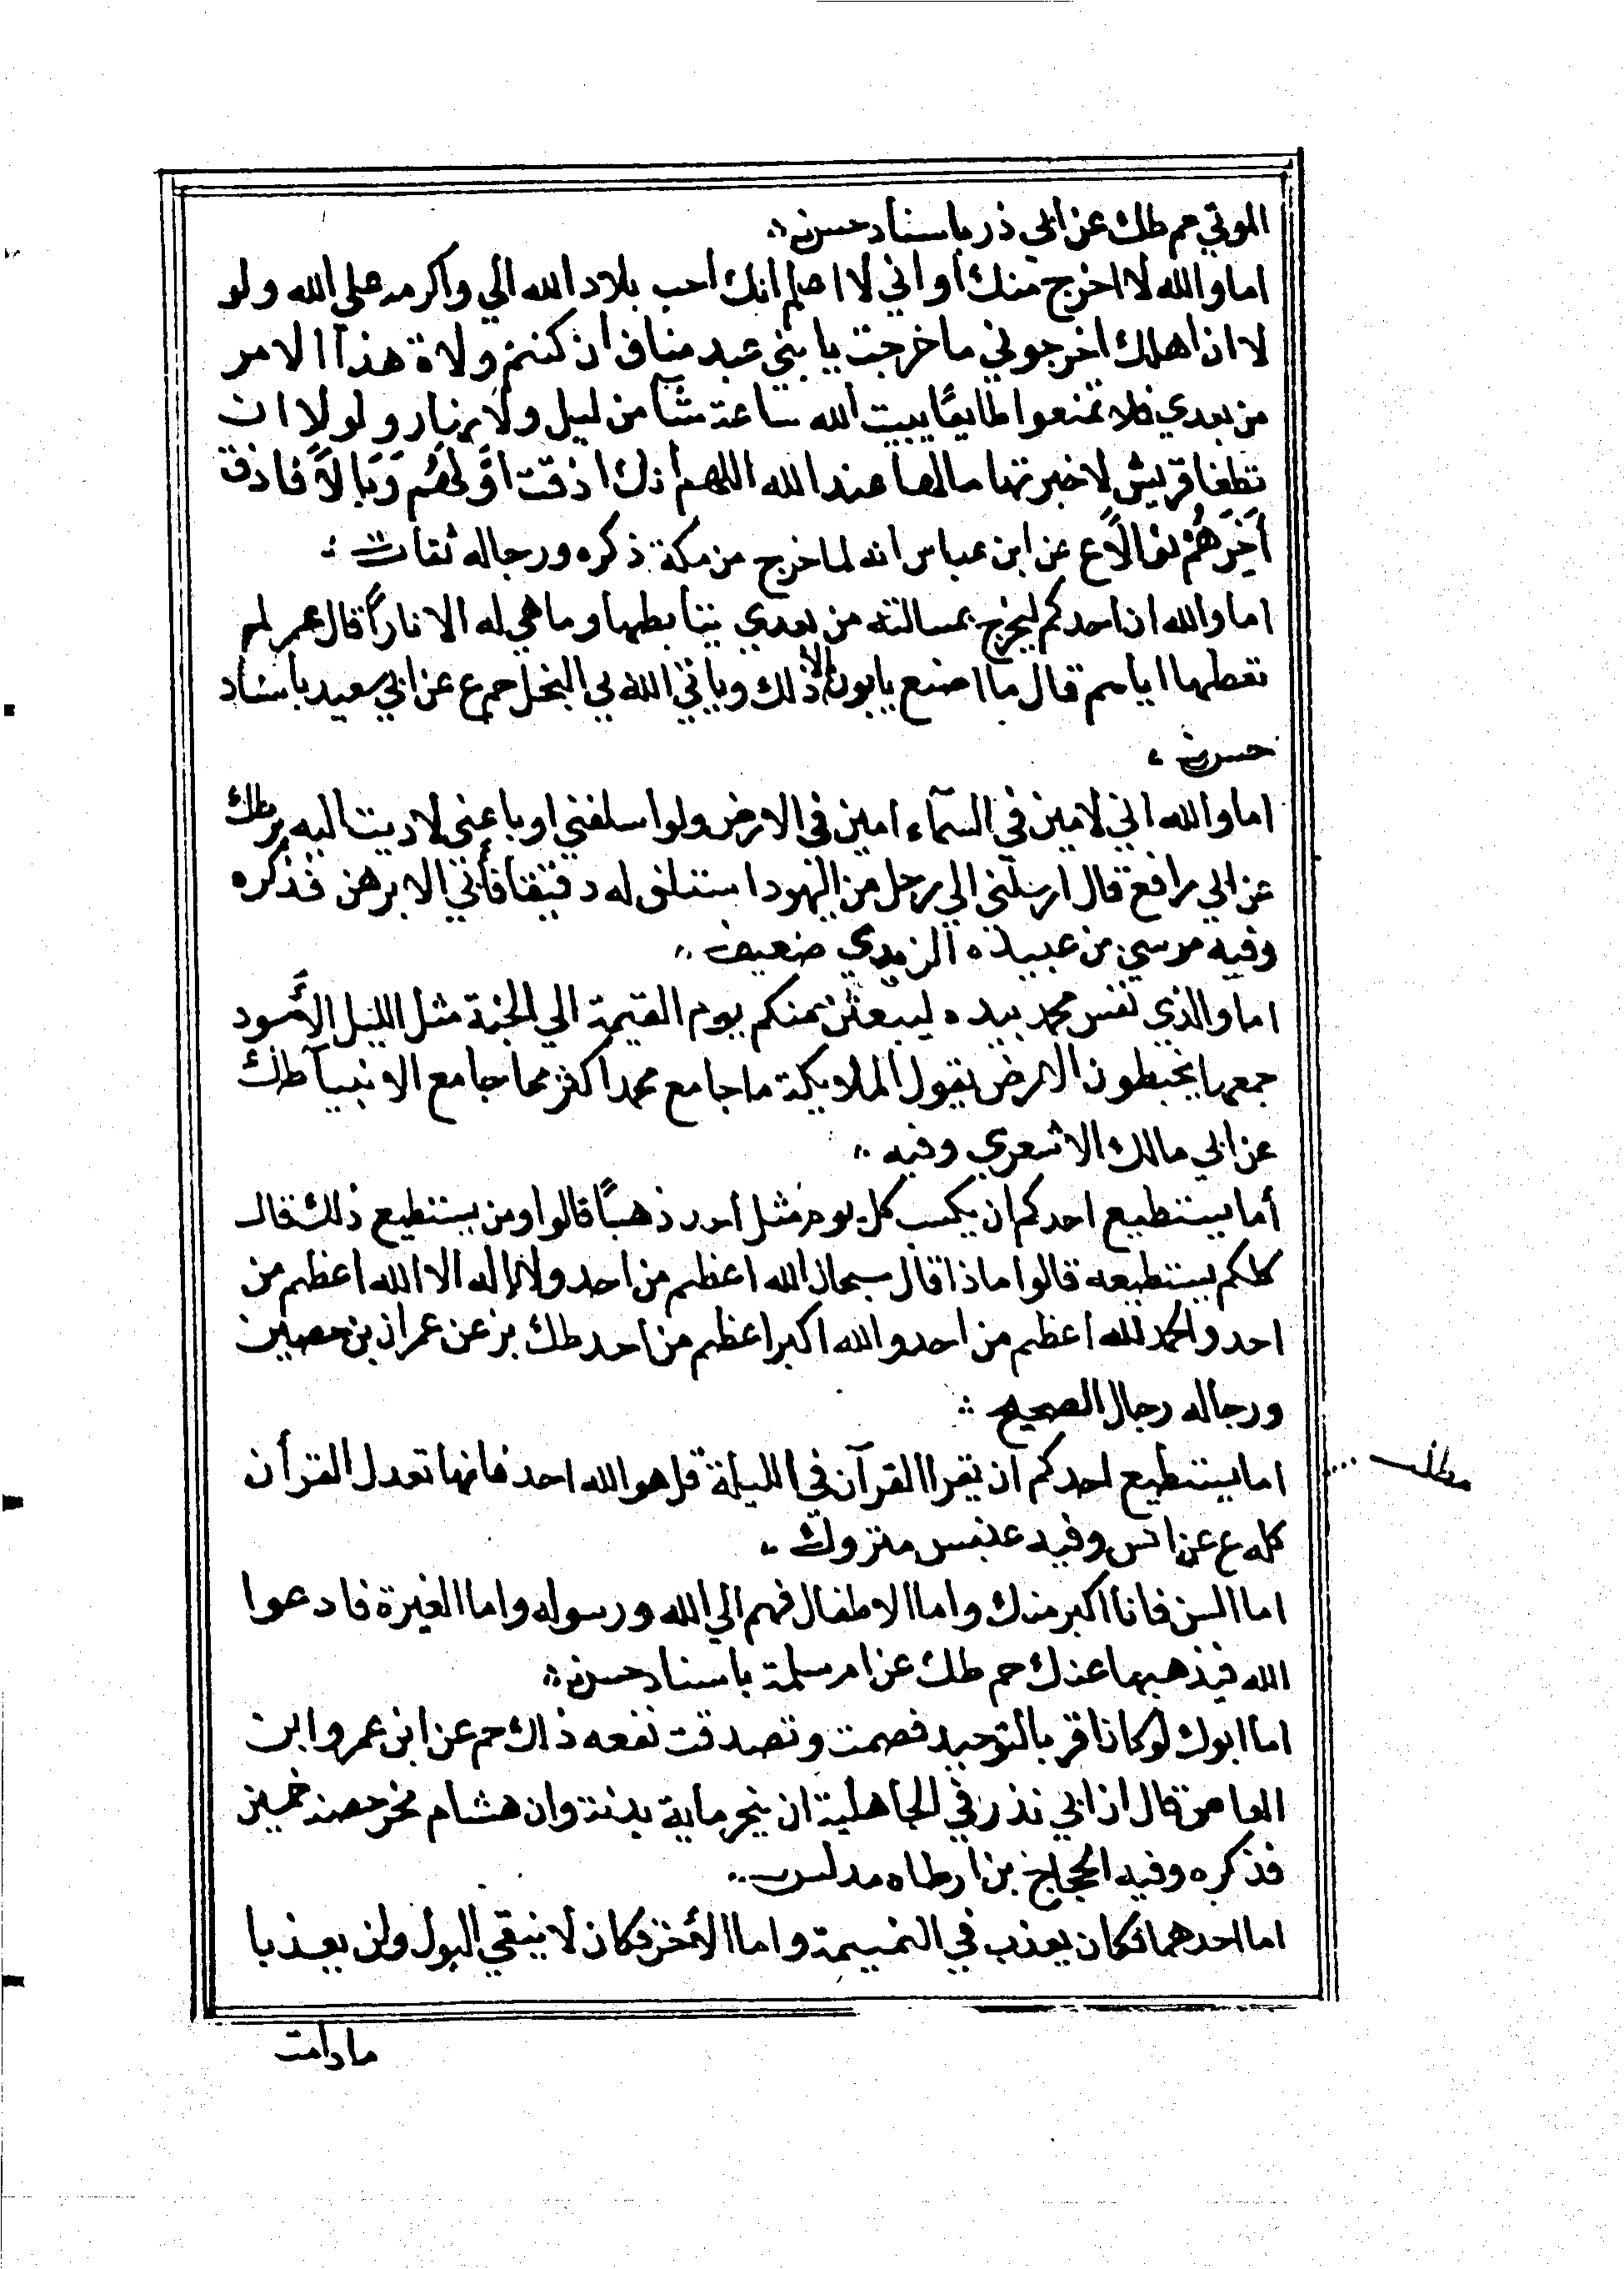 الموتي حم طك عن ابي ذر باسناد حسن
اما والله لا اخرج منك واني لا اعلم انك احب بلاد الله الي واكرمه علي الله ولو
لا ان اهلك اخرجوني ما خرجت يا بني عبد مناف ان كنتم ولاة هذا الامر
من بعدي فلا تمنعوا طايفا ببيت الله ساعة شآ من ليل ولا نهار ولولا ان
تطغا قريش لاخبرتها ما لها عند الله اللهم انك اذقت اوَّلهُم وَبَالاً فاذق
آخِرَهُمْ نوالاً ع عن ابن عباس انه لما خرج من مكة ذكره ورجاله ثقات
اما والله ان احدكم ليخرج بمسالته من بعدي يتابطها وما هي له الا ناراً قال عمر لم
تعطها اياهم قال ما اصنع يابون الا ذلك ويابي الله لي البخل حم ع عن ابي سعيد باسناد
حسن
اما والله اني لامين في السمآء امين في الارض ولو اسلفني او باعني لاديت اليه بز طك
عن ابي رافع قال ارسلني الي رجل من اليهود استسلف له دقيقا فأبي الا برهن فذكره
وفيه موسي بن عبيده الزبدي ضعيف
اما والذي نفس محمد بيده ليبعثن منكم يوم القيمة الي الجنة مثل الليل الأسود
جمعها يخبطون الارض يقول الملايكة ما جا مع محمد اكثر مما جا مع الانبيآ طك
عن ابي مالك الاشعري وفيه
أما يستطيع احدكم ان يكسب كل يوم مثل احد ذهبًا قالوا ومن يستطيع ذلك قال
كلكم يستطيعه قالوا ماذا قال سبحان الله اعظم من احد ولا اله الا الله اعظم من
احد والحمد لله اعظم من احد والله اكبر اعظم من احد طك بز عن عمران بن حصين
ورجاله رجال الصحيح
اما يستطيع احدكم ان يقرا القرآن في الليلة قل هو الله احد فانها تعدل القرأن
مطلب
كله ع عن انس وفيه عنبس متروك
اما السن فانا اكبر منك واما الاطفال فهم الي الله ورسوله واما الغيرة فادعوا
الله فيذهبها عنك حم طك عن ام سلمة باسناد حسن
اما ابوك لو كان اقر بالتوحيد فصمت وتصدقت نفعه ذاك حم عن ابن عمرو ابن
العاص قال ان ابي نذر في الجاهلية ان ينحر ماية بدنة وان هشام نحر حصته خمسين
فذكره وفيه الحجاج بن ارطاه مدلس
اما احدهما فكان يعذب في النميمة واما الأخر فكان لا يتقي البول ولن يعذبا
مادامت